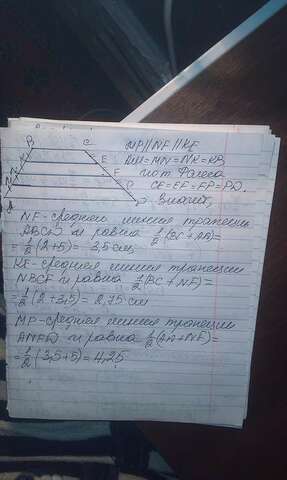 B C
K E
N F
M P
A D
MP||NF||KE
AM=MN=NK=KB
по т. Фалеса
CE=EF=FP=PD.
Значит,
NF-средняя линия трапеции
ABCD и равна 1/2(BC+AD)=
=1/2(2+5)=3,5 см
KE-средняя линия трапеции
NBCF и равна 1/2(BC+NF)=
=1/2(2+3,5)=2,75 см
MP-средняя линия трапеции
ANFD и равна 1/2(AD+NF)=
=1/2(3,5+5)=4,25